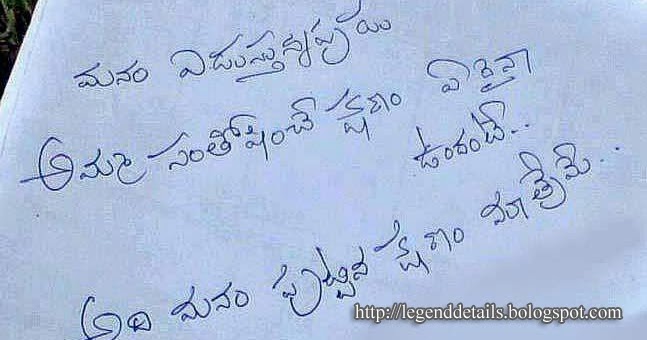 మనం ఏడుస్తున్నప్పుడు
అమ్మ సంతోషించే క్షణం ఏదైనా
ఉందంటే..
అది మనం పుట్టిన క్షణం మాత్రమే..
http://legenddetails.bologspot.com/